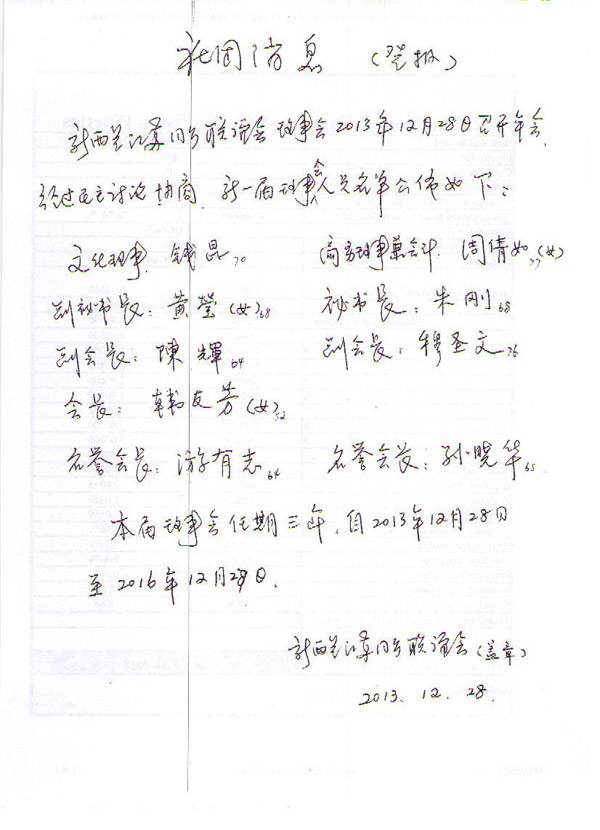 社团消息 (登报)
新西兰江苏同乡联谊会理事会2013年12月28日召开年会,
经过民主讨论协商. 新一届理事会人员名单公佈如下:
文化理事. 钱昆70 商务理事兼会计. 周倩如77(女)
副秘书长: 黄莹(女)68 秘书长: 朱刚68
副会长: 陳輝64 副会长: 穆圣文76
会长: 韩友芳(女)52
名誉会长: 游有志64 名誉会长: 孙晓华65
本届理事会任期三年, 自2013年12月28日
至2016年12月28日.
新西兰江苏同乡联谊会(盖章)
2013. 12. 28.